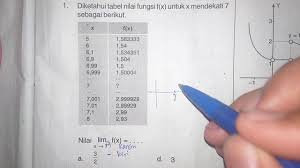 1. Diketahui tabel nilai fungsi f(x) untuk x mendekati 7
sebagai berikut.
x f(x)
5 1,583333
6 1,54
6,1 1,534351
6,9 1,504
6,99 1,5
6,999 1,50004
... ...
? ?
... ...
7,001 2,999928
7,01 2,99929
7,1 2,99
8 2,93
Nilai lim f(x) = . . . .
a. 3/2 d. 3